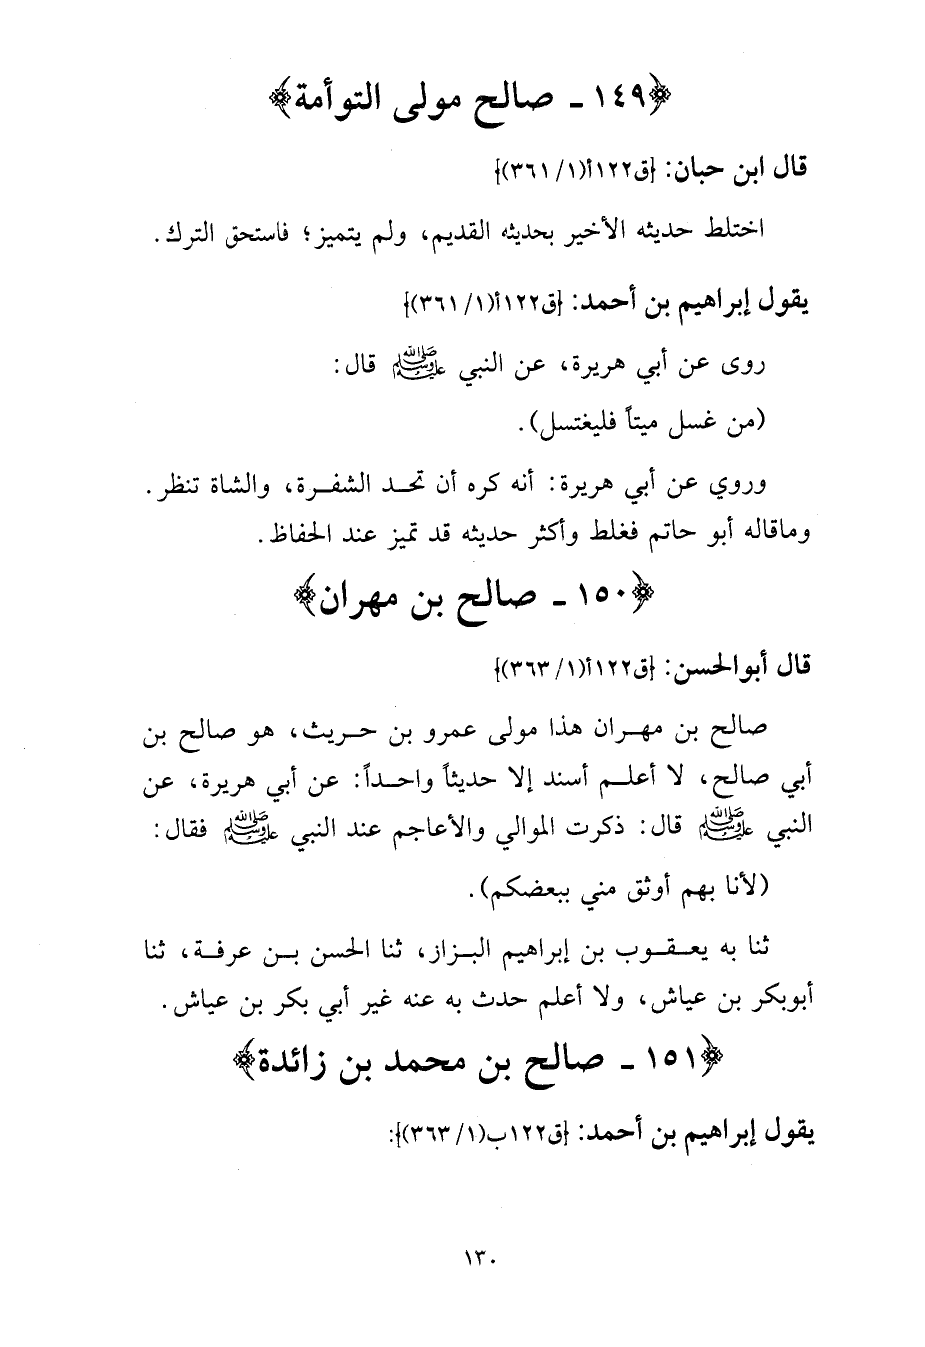 ﴿١٤٩ - صالح مولى التوأمة﴾
قال ابن حبان: {ق١٢٢أ(١/ ٣٦١)}
اختلط حديثه الأخير بحديثه القديم، ولم يتميز؛ فاستحق الترك.
يقول إبراهيم بن أحمد: {ق١٢٢أ(١/ ٣٦١)}
روى عن أبي هريرة، عن النبي ﷺ قال:
(من غسل ميتاً فليغتسل).
وروي عن أبي هريرة: أنه كره أن تحد الشفرة، والشاة تنظر.
وماقاله أبو حاتم فغلط وأكثر حديثه قد تميز عند الحفاظ.
﴿١٥٠ - صالح بن مهران﴾
قال أبوالحسن: {ق١٢٢أ(١/ ٣٦٣)}
صالح بن مهران هذا مولى عمرو بن حريث، هو صالح بن
أبي صالح، لا أعلم أسند إلا حديثاً واحداً: عن أبي هريرة، عن
النبي ﷺ قال: ذكرت الموالي والأعاجم عند النبي ﷺ فقال:
(لأنا بهم أوثق مني ببعضكم).
ثنا به يعقوب بن إبراهيم البزاز، ثنا الحسن بن عرفة، ثنا
أبوبكر بن عياش، ولا أعلم حدث به عنه غير أبي بكر بن عياش.
﴿١٥١ - صالح بن محمد بن زائدة﴾
يقول إبراهيم بن أحمد: {ق١٢٢ب(١/ ٣٦٣)}:
١٣٠